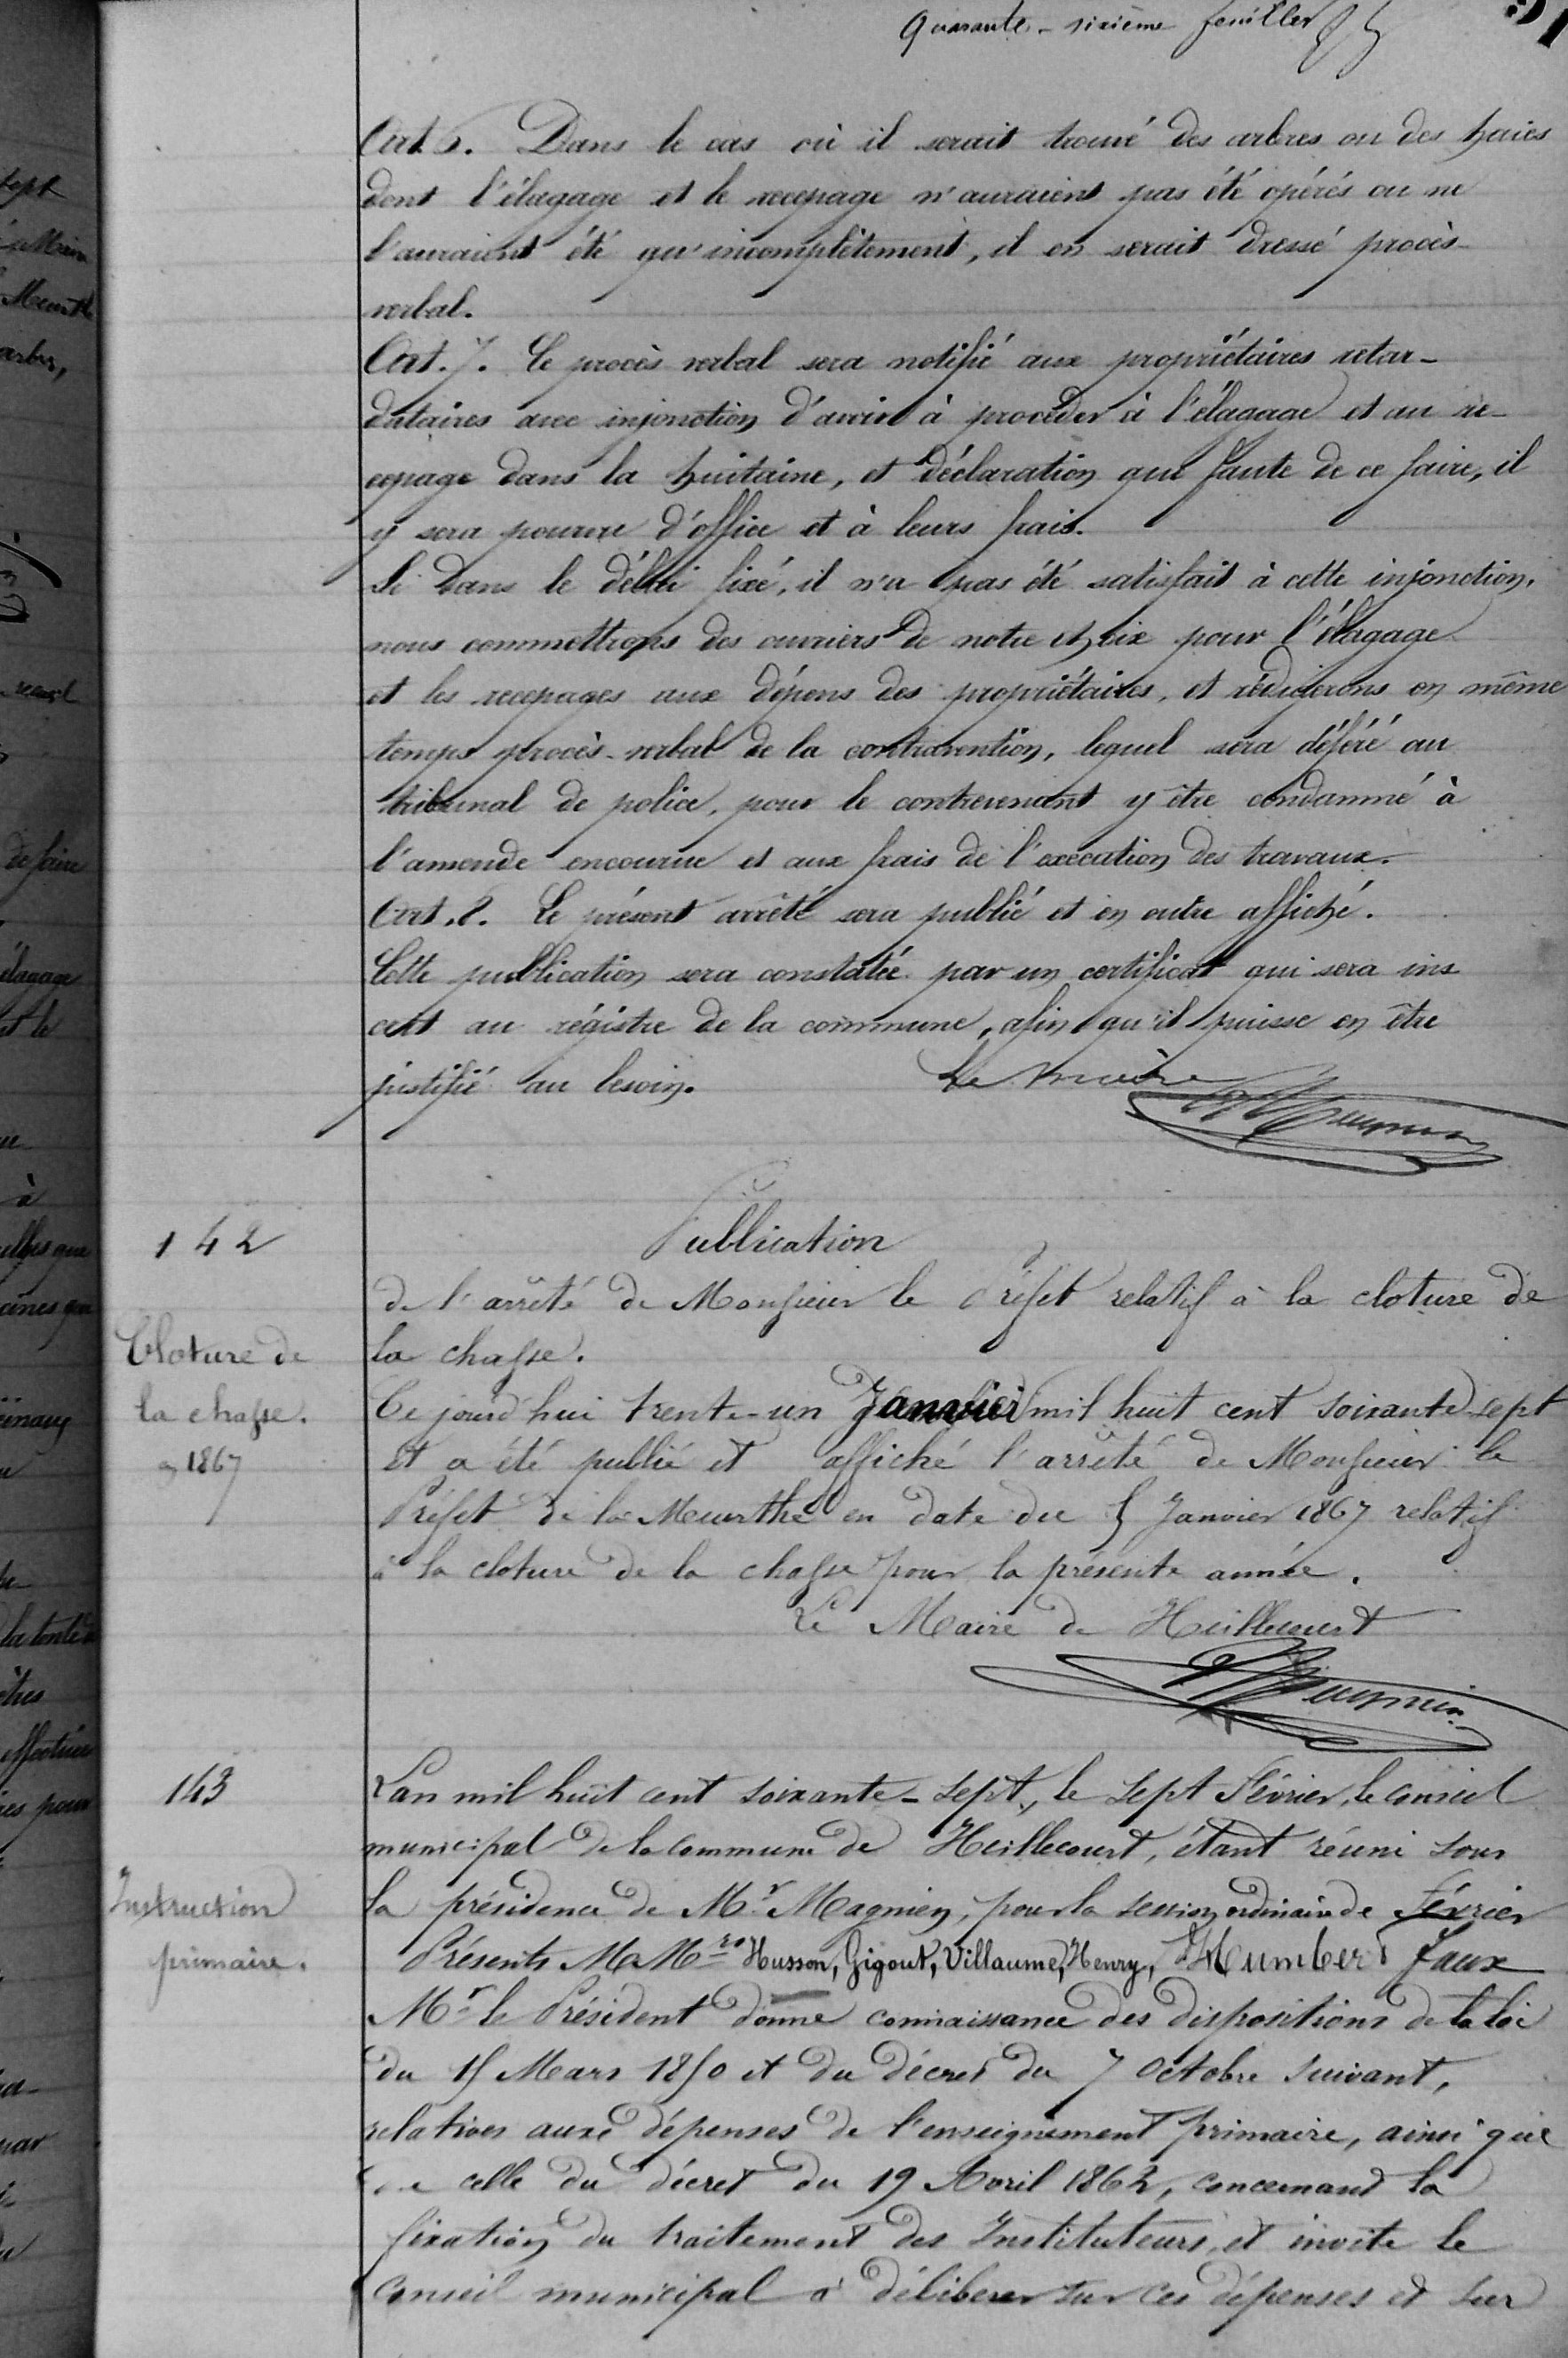 Quarante-sixième feuillet
Art. 6. Dans le cas où il serait trouvé des arbres ou des haies
dont l'élagage et le recepage n'auraient pas été opérés ou ne
l'auraient été qu'incomplètement, il en serait dressé procès-
verbal.
Art. 7. Le procès verbal sera notifié aux propriétaires retar-
dataires avec injonction d'avoir à procéder à l'élagage et au re-
cepage dans la huitaine, et déclaration que faute de ce faire, il
y sera pourvu d'office et à leurs frais.
Si dans le délai fixé, il n'a pas été satisfait à cette injonction,
nous commettrons des ouvriers de notre choix pour l'élagage
et les recepages aux dépens des propriétaires, et rédigerons en même
temps procès-verbal de la contravention, lequel sera déféré au
tribunal de police, pour le contrevenant y être condamné à
l'amende encourue et aux frais de l'exécution des travaux.
Art. 8. Le présent arrêté sera publié et en outre affiché.
Cette publication sera constatée par un certificat qui sera ins
crit au régistre de la commune, afin qu'il puisse en être
justifié au besoin. Le Maire
142
Publication
de l'arrêté de Monsieur le Préfet relatif à la cloture de
la chasse.
Cloture de
la chasse.
en 1867
Ce jourd'hui trente-un Janvier mil huit cent soixante-sept
Et a été publié et affiché l'arrêté de Monsieur le
Préfet de la Meurthe en date du 5 Janvier 1867 relatif
à la cloture de la chasse pour la présente année.
Le Maire de Heillecourt
143
Instruction
primaire.
L'an mil huit cent soixante-sept, le sept Février, le conseil
municipal de la commune de Heillecourt, étant réuni sous
la présidence de Mr Magnien, pour la session ordinaire de Février
Présents MM Husson, Gigout, Villaume, Henry, Humbert Jaux
Mr le Président donne connaissance des dispositions de la loi
du 15 Mars 1850 et du décret du 7 Octobre suivant,
relatives aux dépenses de l'enseignement primaire, ainsi que
de celle du décret du 19 Avril 1862, concernant la
fixation du traitement des Instituteurs, et invite le
Conseil municipal à déliberer sur ces dépenses et sur